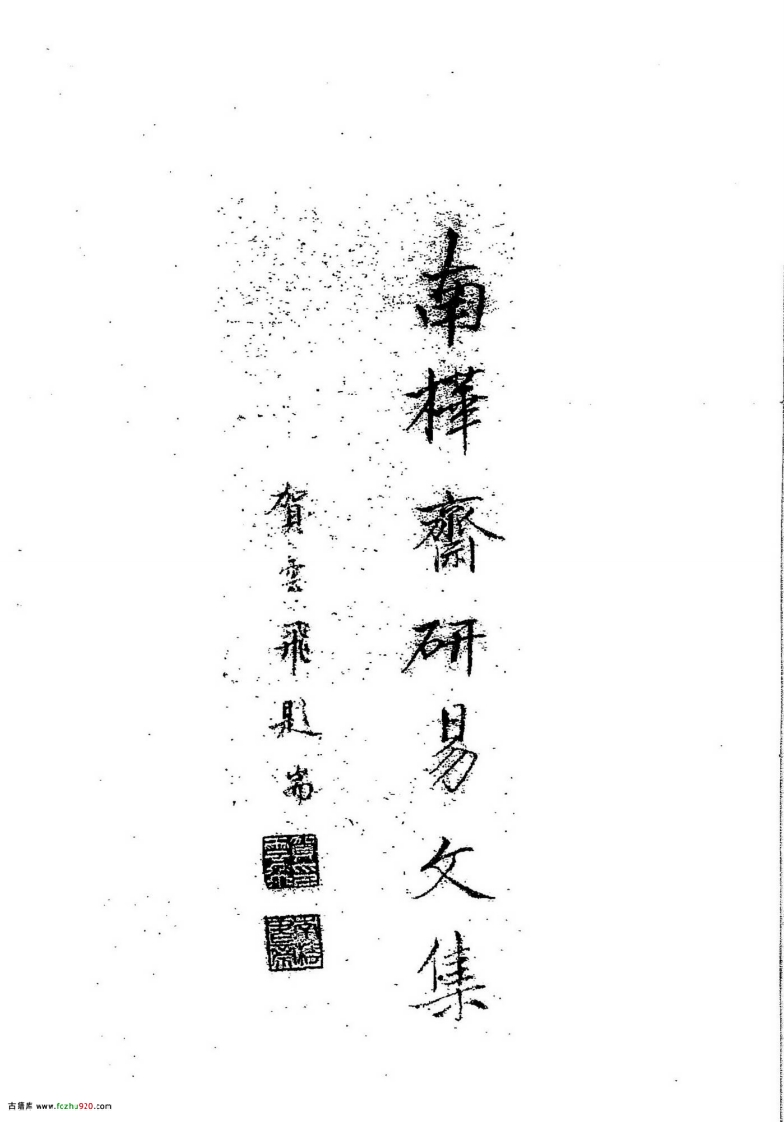 南樺齋研易文集
賀雲飛題耑
古籍库 www.fozhu920.com